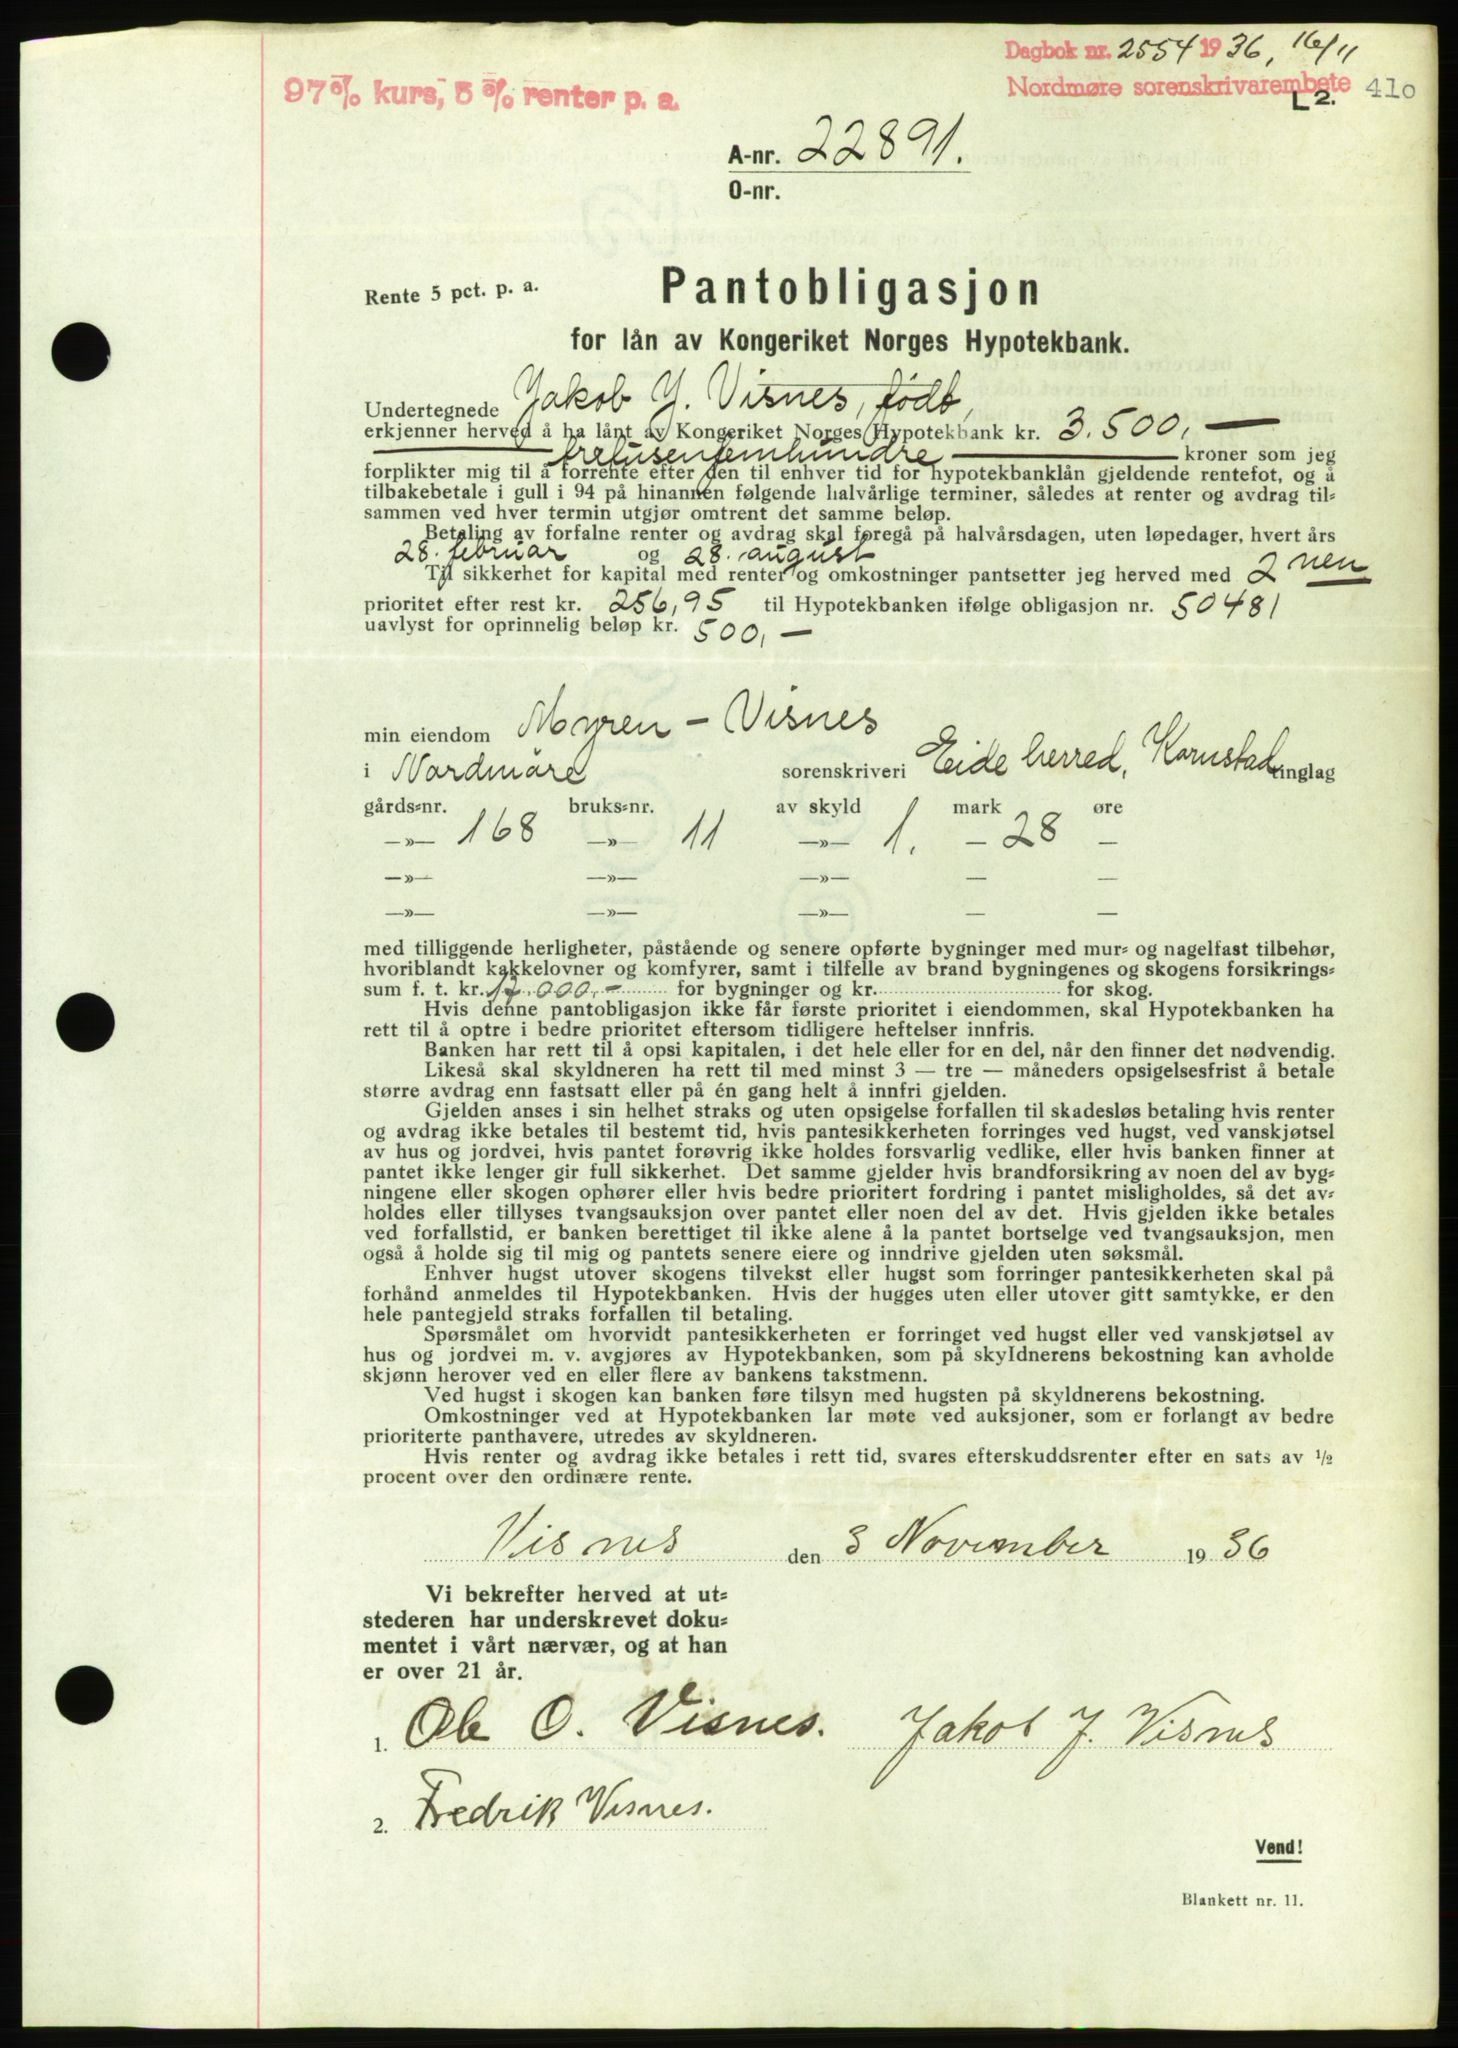 Dagbok nr. 2554 1936, 16/11
Nordmøre sorenskrivarembete 410
L 2.
97 % kurs, 5 % renter p. a.
A-nr. 22891.
O-nr.
Rente 5 pct. p. a.
Pantobligasjon
for lån av Kongeriket Norges Hypotekbank.
Undertegnede Jakob J. Visnes, født,
erkjenner herved å ha lånt av Kongeriket Norges Hypotekbank kr. 3.500,—
tretusenfemhundre kroner som jeg
forplikter mig til å forrente efter den til enhver tid for hypotekbanklån gjeldende rentefot, og å
tilbakebetale i gull i 94 på hinannen følgende halvårlige terminer, således at renter og avdrag til=
sammen ved hver termin utgjør omtrent det samme beløp.
Betaling av forfalne renter og avdrag skal foregå på halvårsdagen, uten løpedager, hvert års
28. februar og 28. august
Til sikkerhet for kapital med renter og omkostninger pantsetter jeg herved med 2 nen
prioritet efter rest kr. 256,95 til Hypotekbanken ifølge obligasjon nr. 50481
uavlyst for oprinnelig beløp kr. 500,—
min eiendom Myren - Visnes
i Nordmøre sorenskriveri Eide herred, Kornstad tinglag
gårds=nr. bruks=nr. av skyld mark øre
—»— 168 —»— 11 —»— 1. — 28 —
—»— —»— —»— — —
—»— —»— —»— — —
med tilliggende herligheter, påstående og senere opførte bygninger med mur= og nagelfast tilbehør,
hvoriblandt kakkelovner og komfyrer, samt i tilfelle av brand bygningenes og skogens forsikrings=
sum f. t. kr. 17.000,— for bygninger og kr. for skog.
Hvis denne pantobligasjon ikke får første prioritet i eiendommen, skal Hypotekbanken ha
rett til å optre i bedre prioritet eftersom tidligere heftelser innfris.
Banken har rett til å opsi kapitalen, i det hele eller for en del, når den finner det nødvendig.
Likeså skal skyldneren ha rett til med minst 3 — tre — måneders opsigelsesfrist å betale
større avdrag enn fastsatt eller på én gang helt å innfri gjelden.
Gjelden anses i sin helhet straks og uten opsigelse forfallen til skadesløs betaling hvis renter
og avdrag ikke betales til bestemt tid, hvis pantesikkerheten forringes ved hugst, ved vanskjøtsel
av hus og jordvei, hvis pantet forøvrig ikke holdes forsvarlig vedlike, eller hvis banken finner at
pantet ikke lenger gir full sikkerhet. Det samme gjelder hvis brandforsikring av noen del av byg=
ningene eller skogen ophører eller hvis bedre prioritert fordring i pantet misligholdes, så det av=
holdes eller tillyses tvangsauksjon over pantet eller noen del av det. Hvis gjelden ikke betales
ved forfallstid, er banken berettiget til ikke alene å la pantet bortselge ved tvangsauksjon, men
også å holde sig til mig og pantets senere eiere og inndrive gjelden uten søksmål.
Enhver hugst utover skogens tilvekst eller hugst som forringer pantesikkerheten skal på
forhånd anmeldes til Hypotekbanken. Hvis der hugges uten eller utover gitt samtykke, er den
hele pantegjeld straks forfallen til betaling.
Spørsmålet om hvorvidt pantesikkerheten er forringet ved hugst eller ved vanskjøtsel av
hus og jordvei m. v. avgjøres av Hypotekbanken, som på skyldnerens bekostning kan avholde
skjønn herover ved en eller flere av bankens takstmenn.
Ved hugst i skogen kan banken føre tilsyn med hugsten på skyldnerens bekostning.
Omkostninger ved at Hypotekbanken lar møte ved auksjoner, som er forlangt av bedre
prioriterte panthavere, utredes av skyldneren.
Hvis renter og avdrag ikke betales i rett tid, svares efterskuddsrenter efter en sats av 1/2
procent over den ordinære rente.
Visnes den 3 November 1936
Vi bekrefter herved at ut=
stederen har underskrevet doku=
mentet i vårt nærvær, og at han
er over 21 år.
1. Ole O. Visnes. Jakob J. Visnes
2. Fredrik Visnes.
Vend!
Blankett nr. 11.